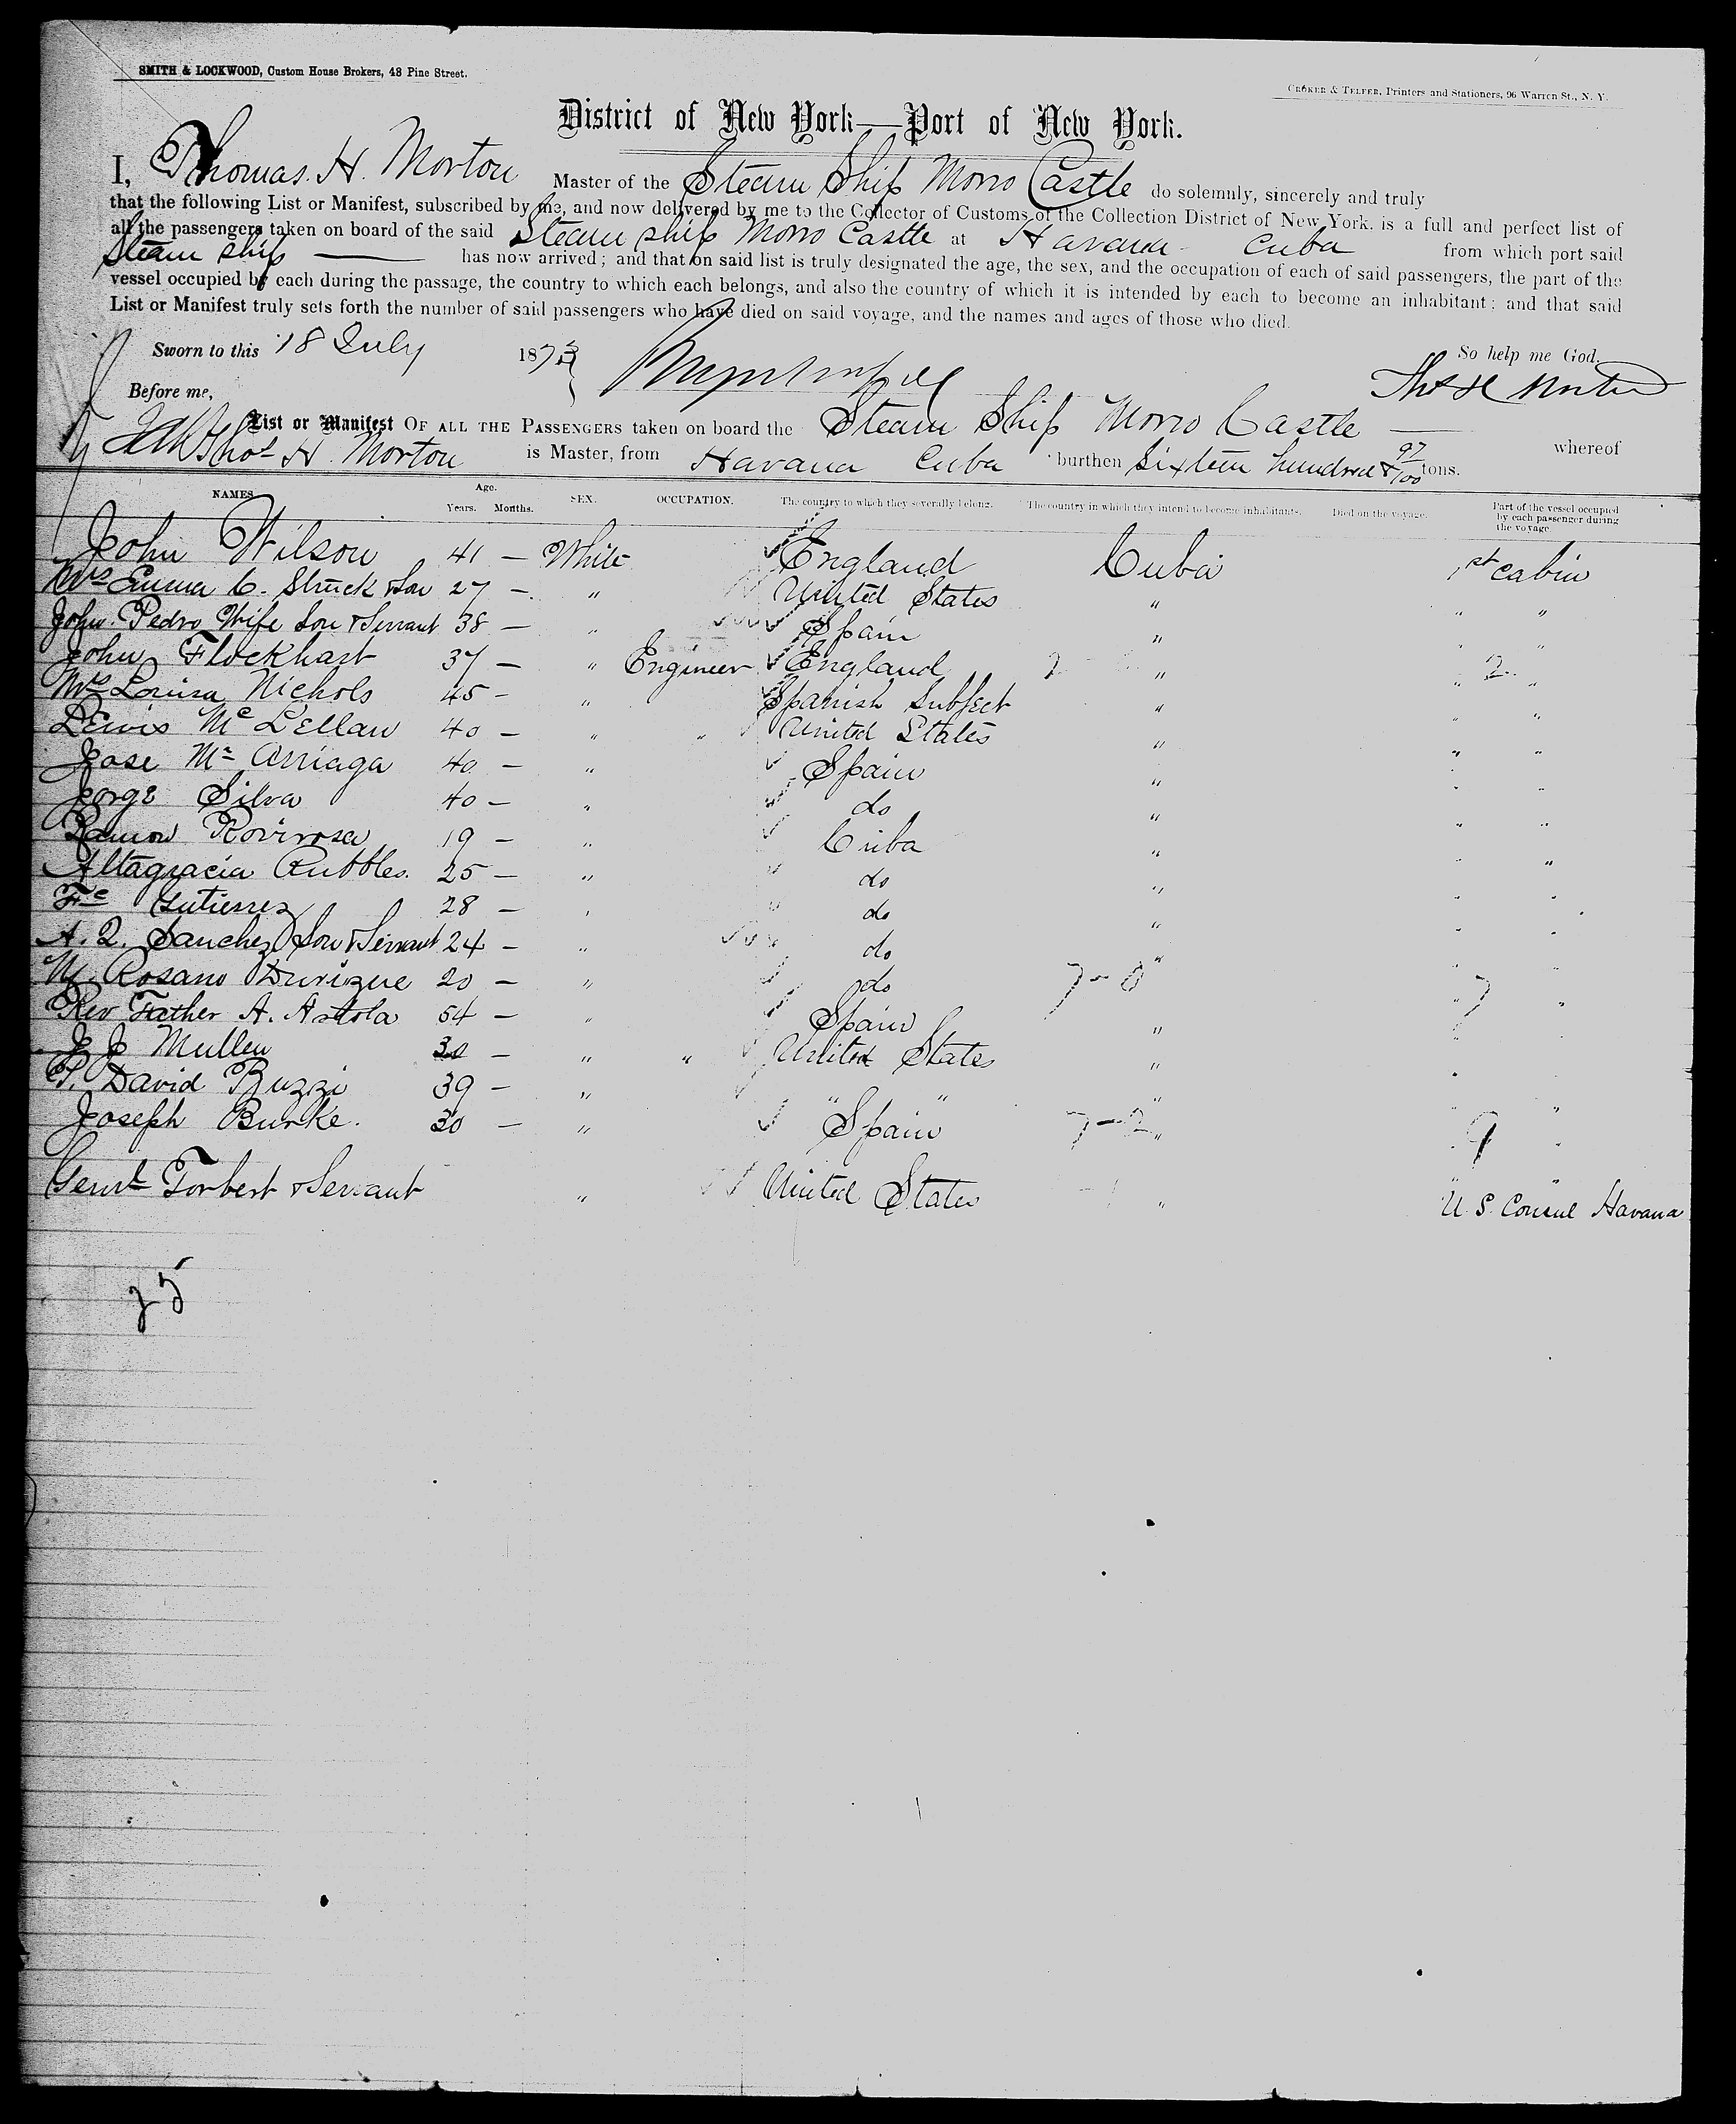 SMITH & LOCKWOOD, Custom House Brokers, 48 Pine Street.
CROKER & TELFER, Printers and Stationers, 96 Warren St., N. Y.
District of New York—Port of New York.
I, Thomas. H. Morton Master of the Steam Ship Morro Castle do solemnly, sincerely and truly
that the following List or Manifest, subscribed by me, and now delivered by me to the Collector of Customs of the Collection District of New York. is a full and perfect list of
all the passengers taken on board of the said Steam ship Morro Castle at Havana Cuba from which port said
Steam ship has now arrived; and that on said list is truly designated the age, the sex, and the occupation of each of said passengers, the part of the
vessel occupied by each during the passage, the country to which each belongs, and also the country of which it is intended by each to become an inhabitant; and that said
List or Manifest truly sets forth the number of said passengers who have died on said voyage, and the names and ages of those who died.
Sworn to this 18 July 187 So help me God.
Before me, Thos H Morton
List or Manifest OF ALL THE PASSENGERS taken on board the Steam Ship Morro Castle — whereof
Thos H. Morton is Master, from Havana Cuba burthen Sixteen hundred & 97/100 tons.
NAMES Age. Years. Months. SEX. OCCUPATION. The country to which they severally belong. The country in which they intend to become inhabitants. Died on the voyage. Part of the vessel occupied by each passenger during the voyage.
John Wilson 41 — White England Cuba 1st Cabin
Mrs Emma C. Struck & Son 27 — " United States " " "
John Pedro Wife Son & Servant 38 — " Spain " " "
John Flockhart 37 — " Engineer England " 2 "
Mrs Louisa Nichols 45 — " Spanish Subject " " "
Lewis McLellan 40 — " " United States " " "
Jose Ma Arriaga 40 — " Spain " " "
Jorge Silva 40 — " do " " "
Ramon Rovirosa 19 — " Cuba " " "
Altagracia Rubbles. 25 — " do " " "
Fco Gutierrez 28 — " do " " "
A. Q. Sanchez Son & Servant 24 — " do " " "
M. Rosano 20 — " do 7-0 " 7 "
Rev Father A. Astola 54 — " Spain " " "
J J Mullen 30 — " " United States "
P. David Buzzi 39 — " " " " " "
Joseph Burke. 30 — " Spain 7-2 " 9 "
Genrl Torbert & Servant " United States " U. S. Consul Havana
25